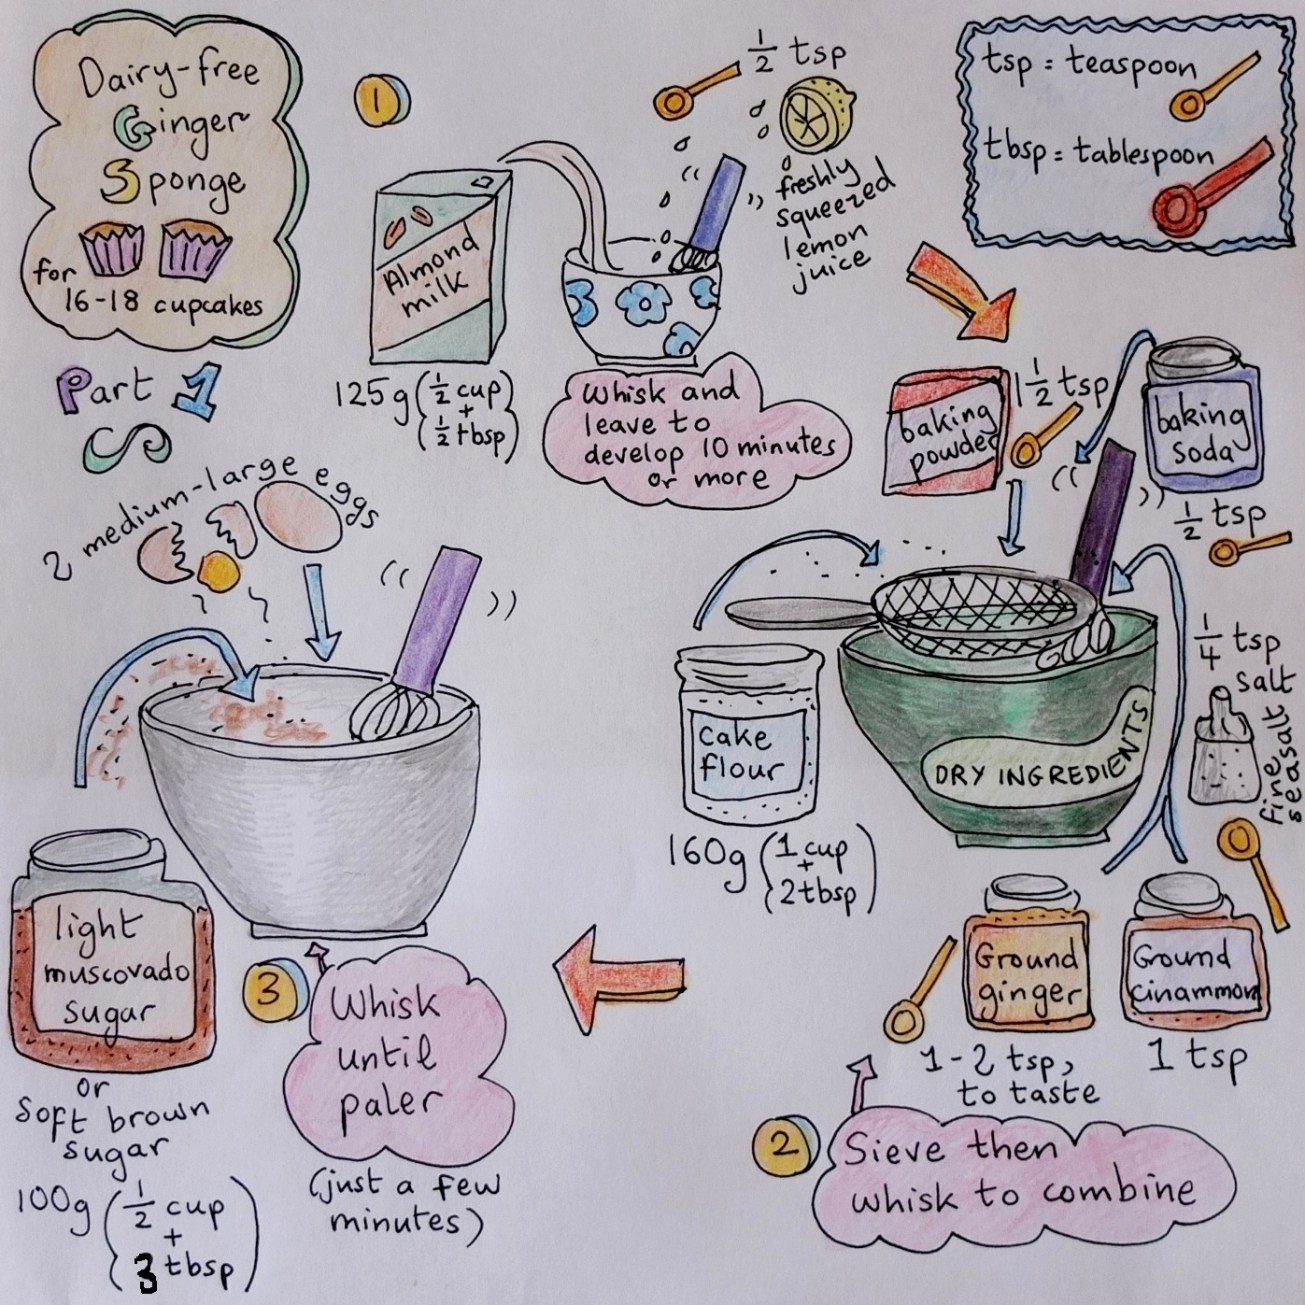 Dairy-free
Ginger
Sponge
for
16-18 cupcakes
Part 1
1
Almond
milk
125g (½ cup
+
½ tbsp)
½ tsp
freshly
squeezed
lemon
juice
Whisk and
leave to
develop 10 minutes
or more
tsp = teaspoon
tbsp = tablespoon
baking
powder
1½ tsp
baking
soda
½ tsp
cake
flour
160g (1 cup
+
2 tbsp)
DRY INGREDIENTS
¼ tsp
salt
fine
seasalt
Ground
ginger
1-2 tsp,
to taste
Ground
cinammon
1 tsp
2
Sieve then
whisk to combine
2 medium-large eggs
light
muscovado
sugar
or
soft brown
sugar
100g (½ cup
+
3 tbsp)
3
Whisk
until
paler
(just a few
minutes)